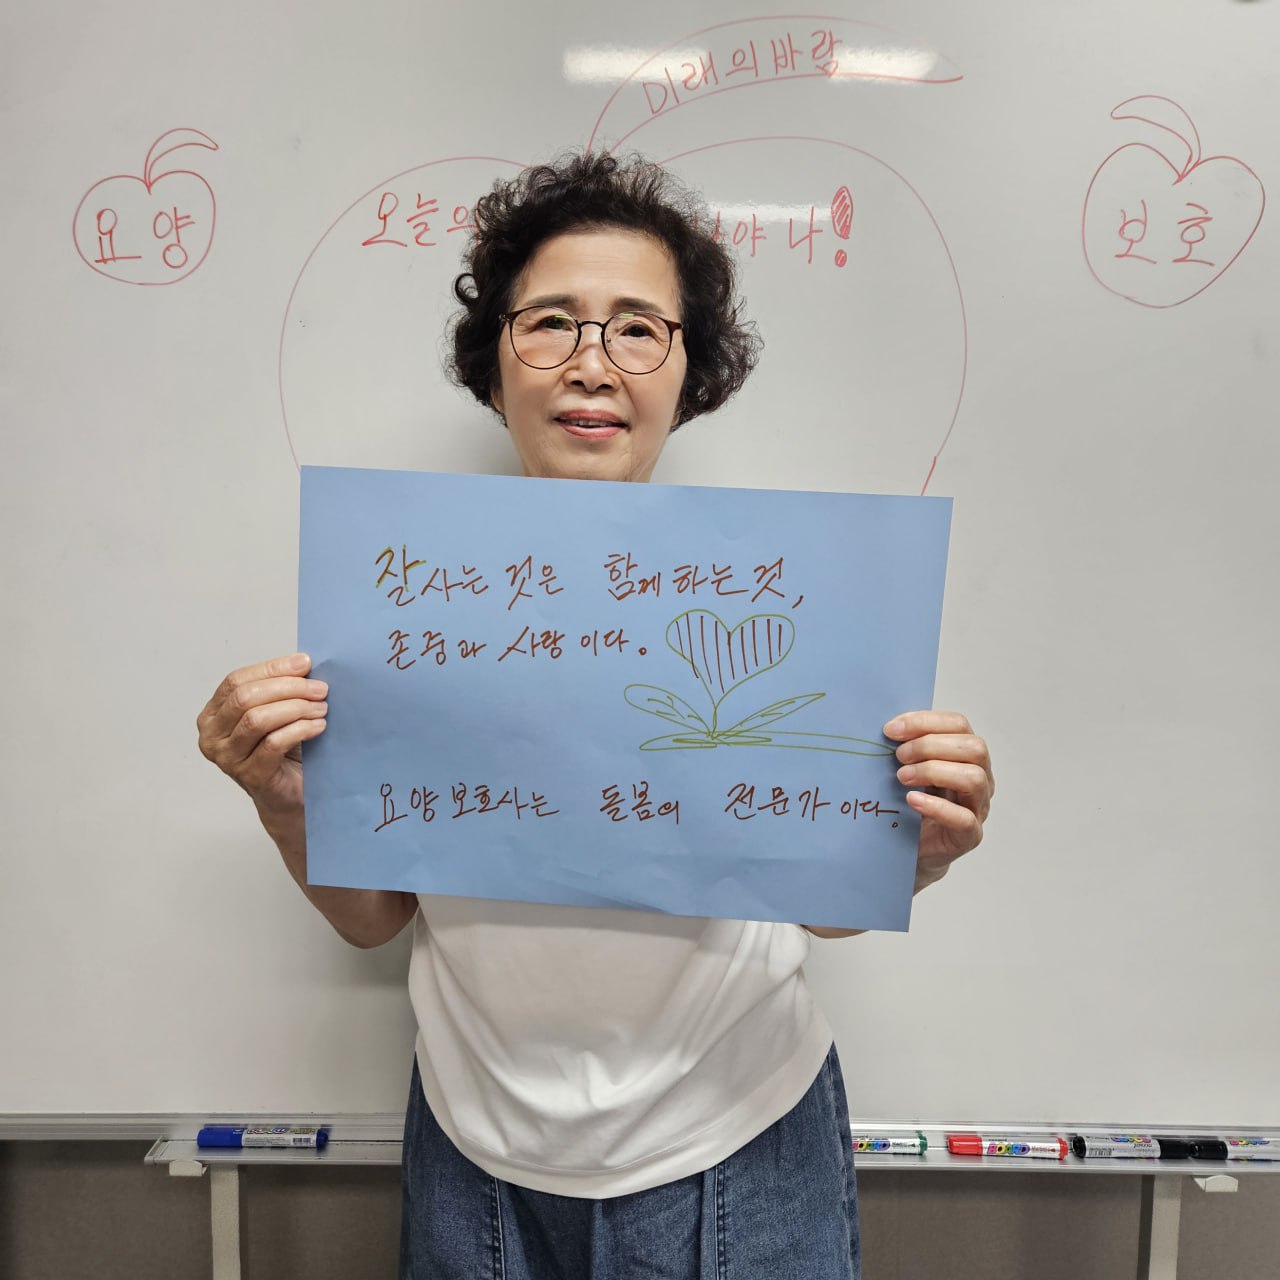 미래의 바람
오늘의 야 나!
요양
보호
잘 사는 것은 함께 하는 것,
존중과 사랑이다.
요양보호사는 돌봄의 전문가이다.